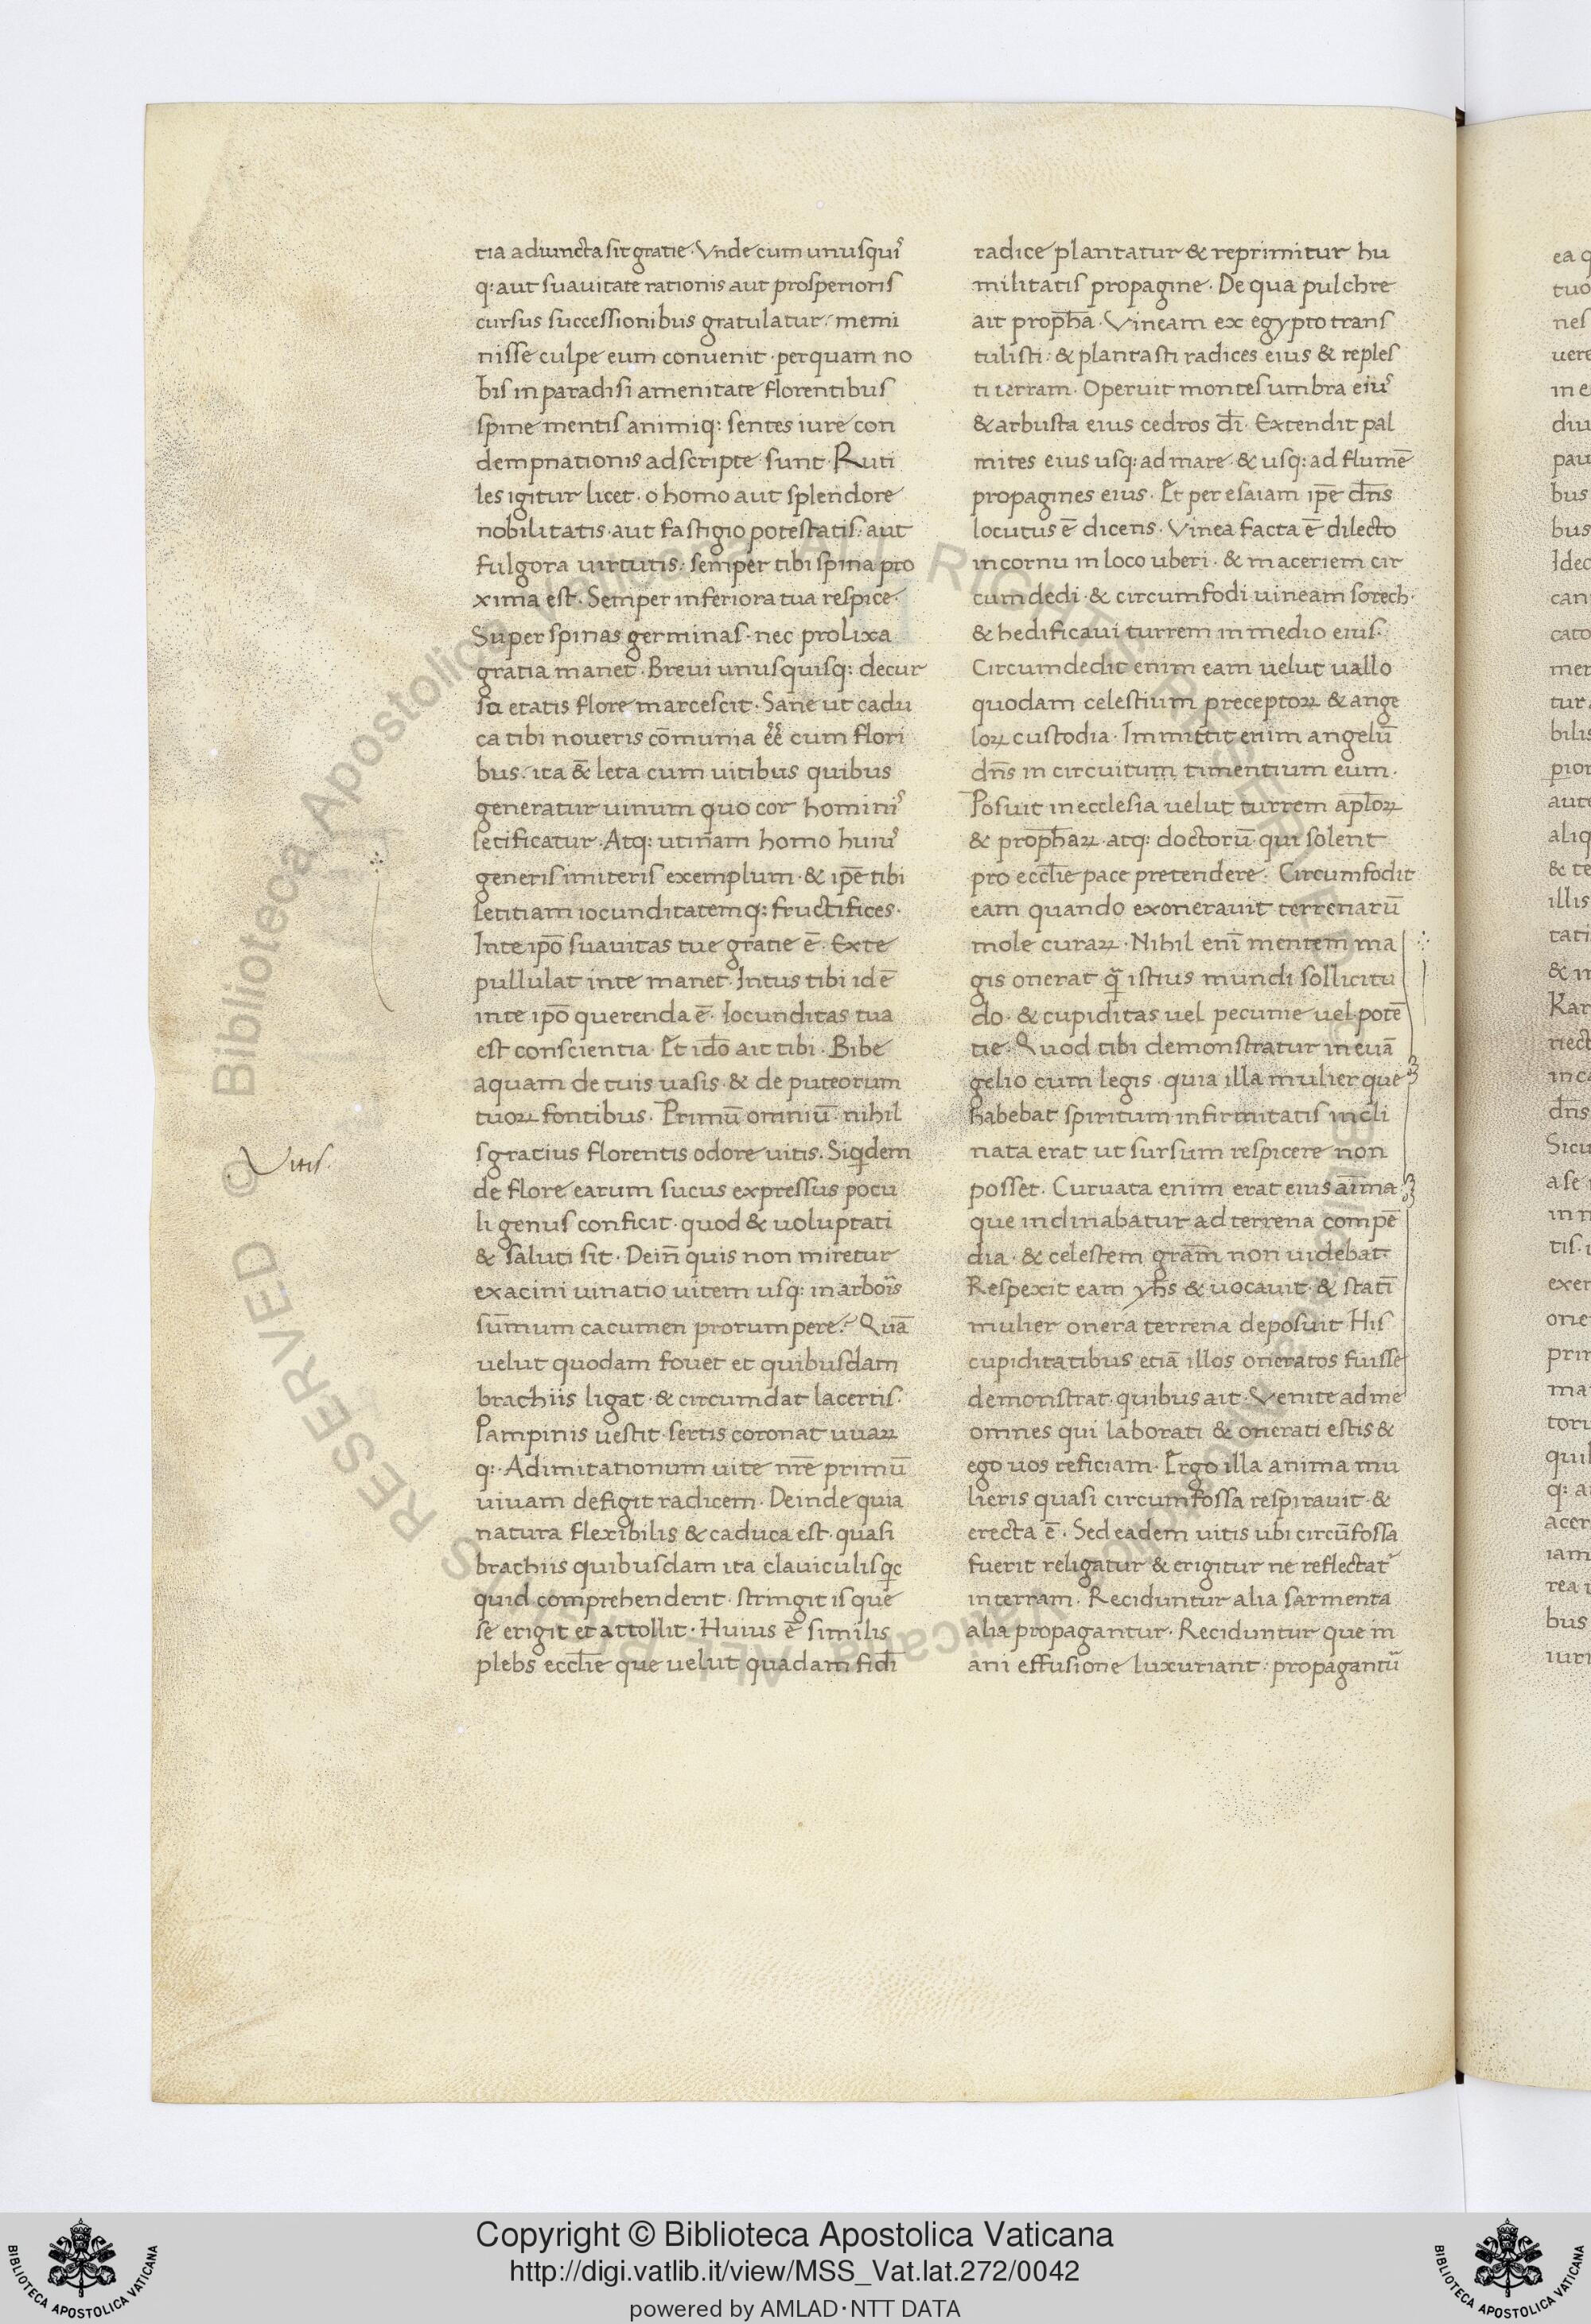 tia adiuncta sit gratie · Vnde cum unusqui᷒
q: aut suauitate rationis aut prosperioris
cursus successionibus gratulatur · memi
nisse culpe eum conuenit · per quam no
bis in paradisi amenitate florentibus
spine mentis animiq: sentes iure con
dempnationis adscripte sunt · Ruti
les igitur licet · o homo aut splendore
nobilitatis · aut fastigio potestatis · aut
fulgora uirtutis : semper tibi spina pro
xima est · Semper inferiora tua respice ·
Super spinas germinas · nec prolixa
gratia manet · Breui unusquisq: decur
sa etatis flore marcescit · Sane ut cadu
ca tibi noueris cōmunia ēē cum flori
bus · ita & leta cum uitibus quibus
generatur uinum quo cor homini᷒
letificatur · Atq: utinam homo huiu᷒
generis imiteris exemplum · & ip̄e tibi
letitiam iocunditatemq: fructifices ·
In te ip̄o suauitas tue gratie ē · Ex te
pullulat in te manet · Intus tibi idē
in te ip̄o querenda ē · Iocunditas tua
est conscientia · Et id̄o ait tibi · Bibe
aquam de tuis uasis · & de puteorum
tuoꝝ fontibus · Primū omniū · nihil
s gratius florentis odore uitis · Siq̇dem
de flore earum sucus expressus pocu
li genus conficit · quod & uoluptati
& saluti sit · Dein̄ quis non miretur
ex acini uinatio uitem usq: in arboris
sūmum cacumen prorumpere? Quā
uelut quodam fouet et quibusdam
brachiis ligat · & circumdat lacertis ·
Pampinis uestit · sertis coronat uuaꝝ
q: · Ad imitationum uite nr̄e primū
uiuam defigit radicem · Deinde quia
natura flexibilis & caduca est · quasi
brachiis quibusdam ita clauiculis q̇c
quid comprehenderit · stringit is que
se erigit et attollit · Huius ē similis
plebs eccl̄ie que uelut quadam fid̄i
Vitis ·
radice plantatur & reprimitur hu
militatis propagine · De qua pulchre
ait proph̄a · Vineam ex egypto trans
tulisti : & plantasti radices eius & reples
ti terram · Operuit montes umbra eiu᷒
& arbusta eius cedros d̄i · Extendit pal
mites eius usq: ad mare · & usq: ad flumē
propagines eius · Et per esaiam ip̄e dn̄s
locutus ē dicens · Vinea facta ē dilecto
in cornu in loco uberi · & maceriem cir
cumdedi · & circumfodi uineam sorech ·
& hedificaui turrem in medio eius ·
Circumdedit enim eam uelut uallo
quodam celestium preceptoꝝ & ange
loꝝ custodia · Immittit enim angelū
dn̄s in circuitum timentium eum ·
Posuit in ecclesia uelut turrem apl̄oꝝ
& proph̄aꝝ · atq: doctorū · qui solent
pro eccl̄ie pace pretendere · Circumfodit
eam quando exonerauit terrenarū
mole curaꝝ · Nihil enī mentem ma
gis onerat q̄ istius mundi sollicitu
do · & cupiditas uel pecunie uel potē
tie · Quod tibi demonstratur in euā
gelio cum legis · quia illa mulier que
habebat spiritum infirmitatis incli
nata erat ut sursum respicere non
posset · Curuata enim erat eius aīma
que inclinabatur ad terrena compē
dia · & celestem gram̄ non uidebat ·
Respexit eam yh̄s & uocauit · & statī
mulier onera terrena deposuit · His
cupiditatibus etiā illos oneratos fuisse
demonstrat · quibus ait · Venite ad me
omnes qui laborati & onerati estis &
ego uos reficiam · Ergo illa anima mu
lieris quasi circumfossa respirauit · &
erecta ē · Sed eadem uitis ubi circūfossa
fuerit religatur & erigitur ne reflectat᷒
in terram · Reciduntur alia sarmenta
alia propagantur · Reciduntur que in
ani effusione luxuriant : propagantū
© Biblioteca Apostolica Vaticana ALL RIGHTS RESERVED
BIBLIOTECA APOSTOLICA VATICANA
Copyright © Biblioteca Apostolica Vaticana
http://digi.vatlib.it/view/MSS_Vat.lat.272/0042
powered by AMLAD·NTT DATA
BIBLIOTECA APOSTOLICA VATICANA